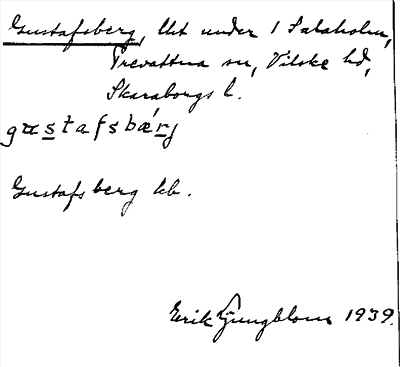 Gustafsberg, lht under 1 Salaholm,
Trevattna sn, Vilske hd,
Skaraborgs l.
gustafsbærj
Gustafsberg kb.
Erik Ljungblom 1939.